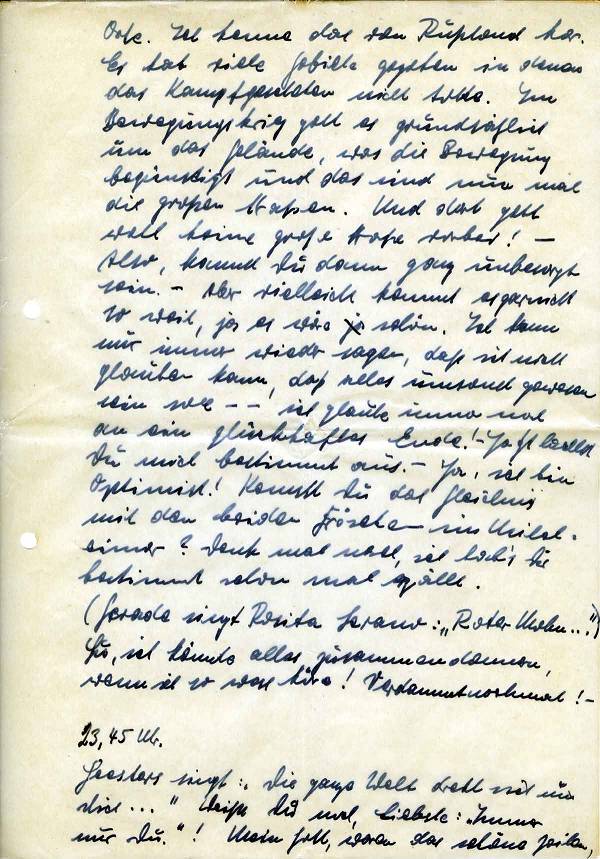 Orte. Ich kenne das von Rußland her.
Es hat viele Gebiete gegeben in denen
das Kampfgeschehen nicht tobte. Im
Bewegungskrieg geht es grundsätzlich
um das Gelände, was die Bewegung
begünstigt und das sind nun mal
die großen Straßen. Und dort geht
wohl keine große Straße vorbei! –
Also, kannst Du dann ganz unbesorgt
sein. – Aber vielleicht kommt es garnicht
so weit, ja es wäre ja schön. Ich kann
nur immer wieder sagen, daß ich nicht
glauben kann, daß alles umsonst gewesen
sein soll – – ich glaube immer noch
an ein glückhaftes Ende! – Jetzt lachst
Du mich bestimmt aus. – Ja, ich bin
Optimist! Kennst Du das Gleichnis
mit den beiden Fröschen im Milch-
eimer? Denk mal nach, ich hab's Dir
bestimmt schon mal erzählt.
(Gerade singt Rosita Serano: „Roter Mohn...")
Du, ich könnte alles zusammen
wenn ich so was höre! Verdammtnochmal! –
23,45 Uhr.
Heesters singt: „Die ganze Welt dreht sich um
dich..." Weißt Du noch, Liebste: „Immer
nur Du."! Mein Gott, waren das schöne Zeiten,